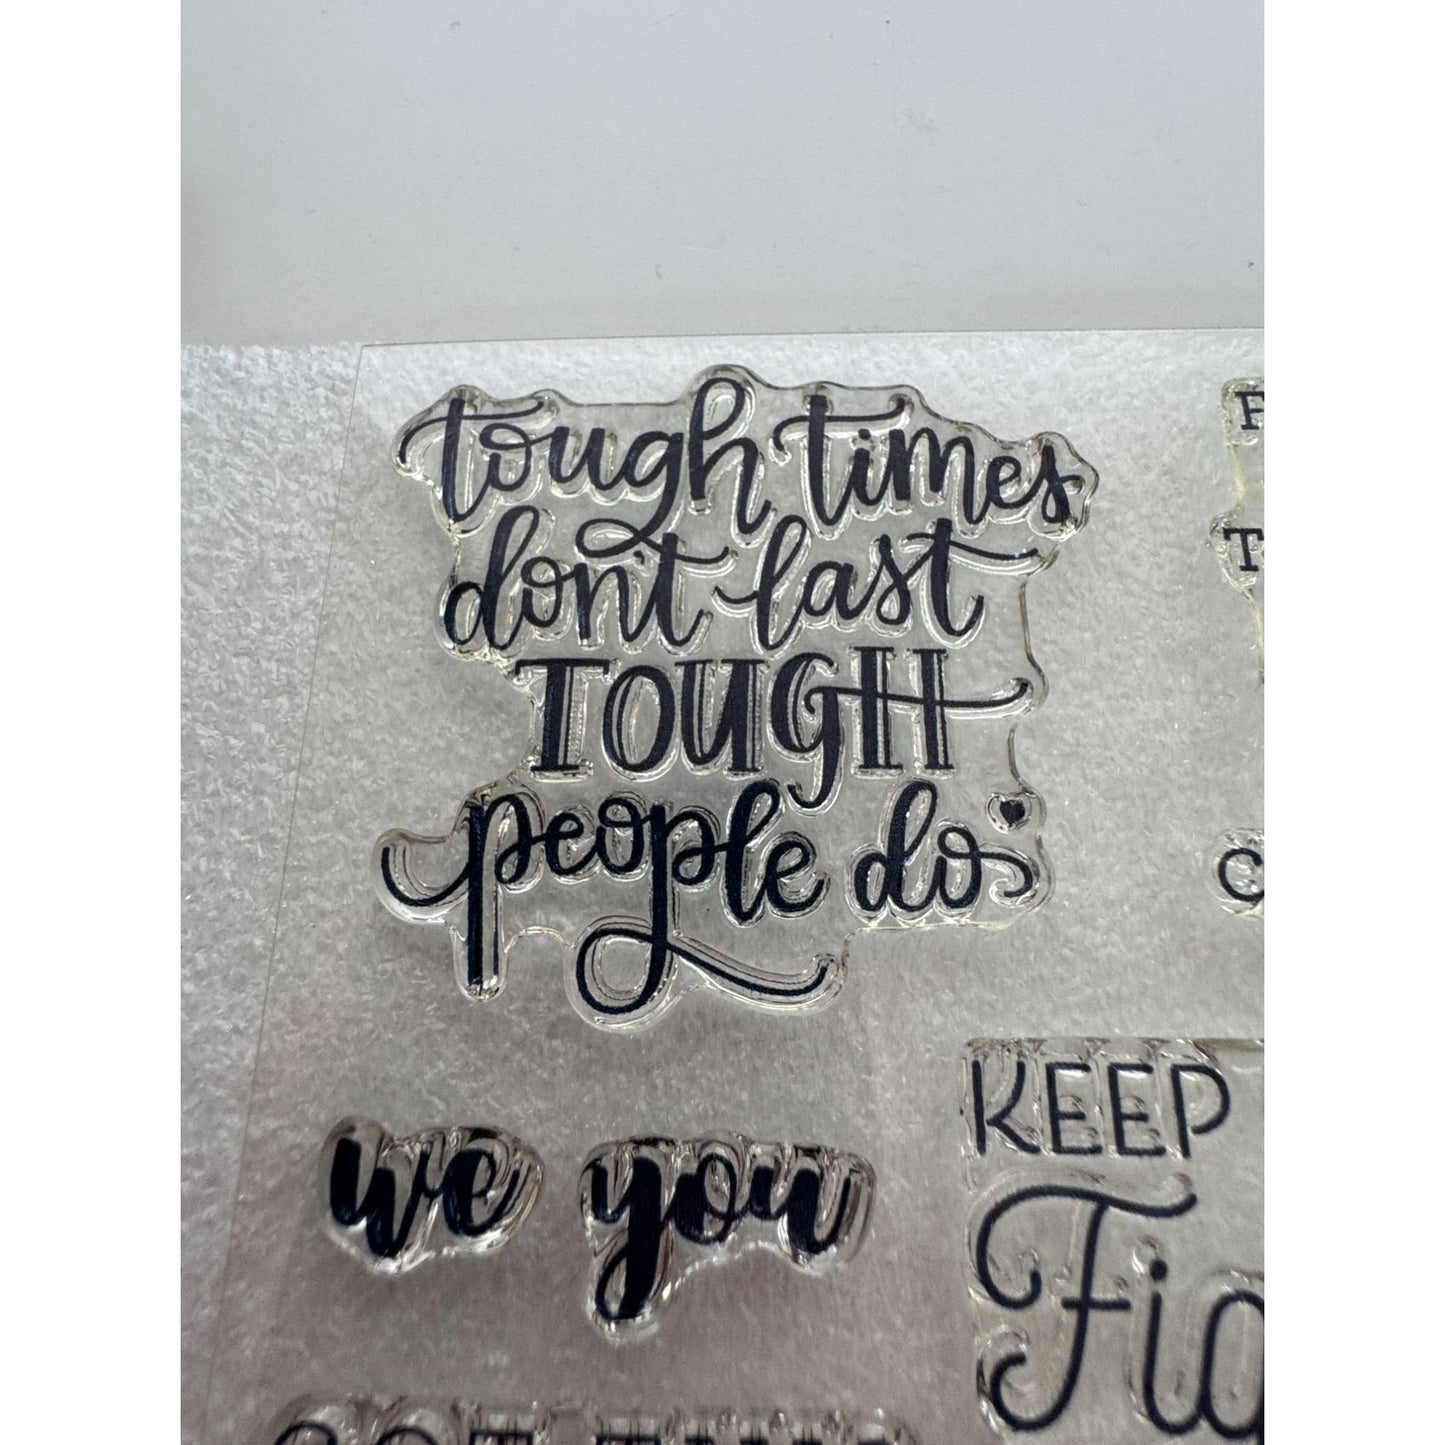 tough times
don't last
TOUGH
people do
we you
KEEP